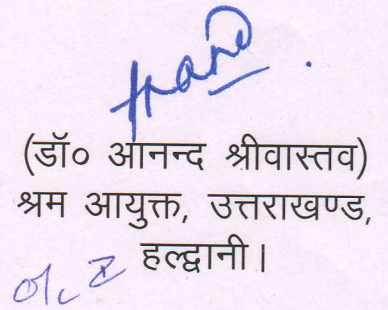 (डॉ० आनन्द श्रीवास्तव)
श्रम आयुक्त, उत्तराखण्ड,
हल्द्वानी।